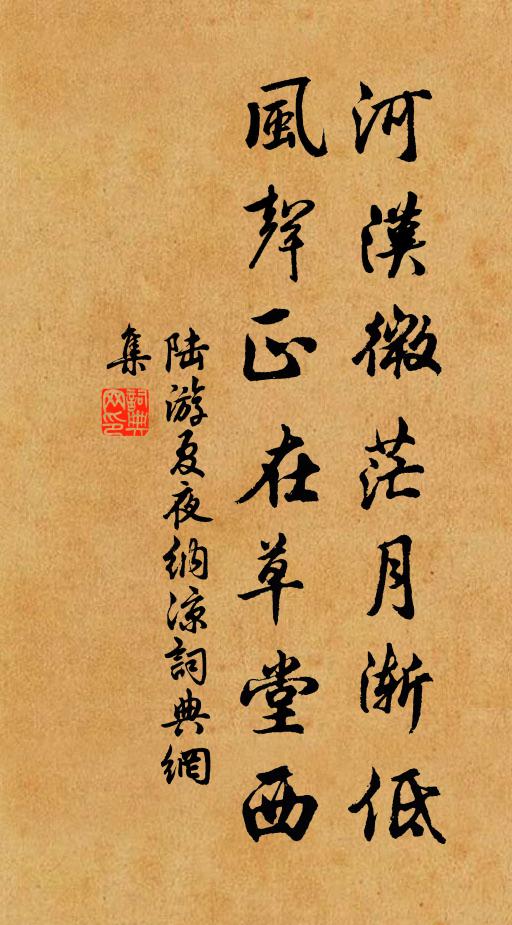 河漢微茫月漸低
風聲正在草堂西
陆游夏夜納凉詞典網
集
詞典
网印